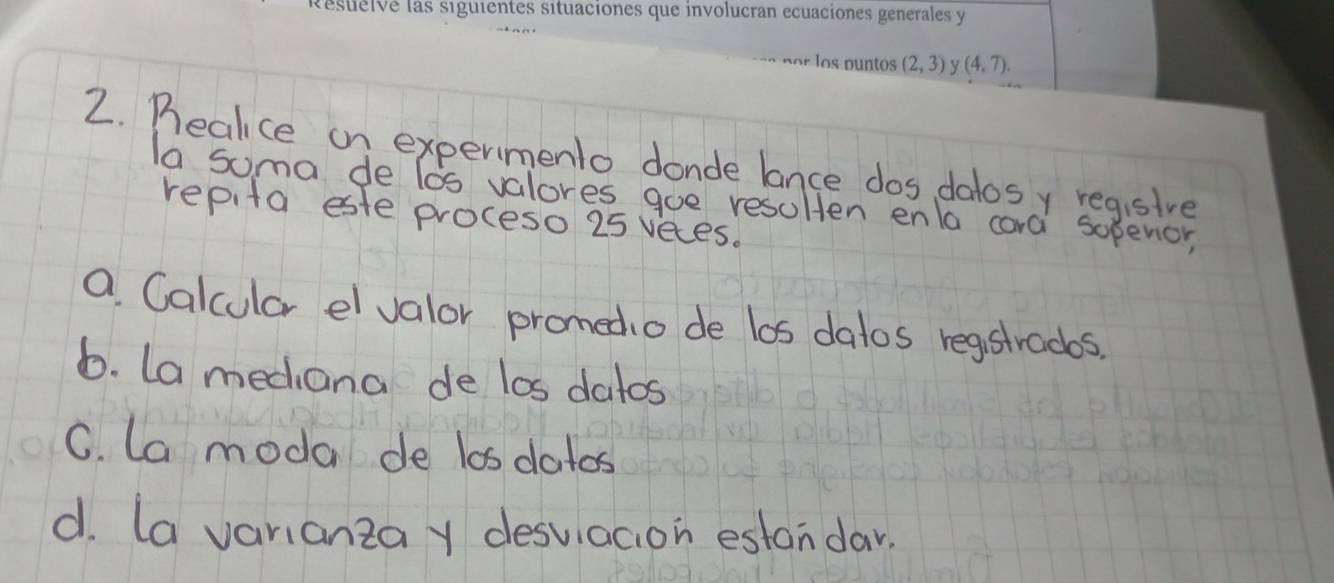 Resuelve las siguientes situaciones que involucran ecuaciones generales y
por los puntos (2, 3) y (4, 7).
2. Realice un experimento donde lance dos datos y registre
la suma de los valores que resulten en la cara superior,
repita este proceso 25 veces.
a. Calcular el valor promedio de los datos registrados.
b. la mediana de los datos
c. la moda de los datos
d. la varianza y desviación estándar.